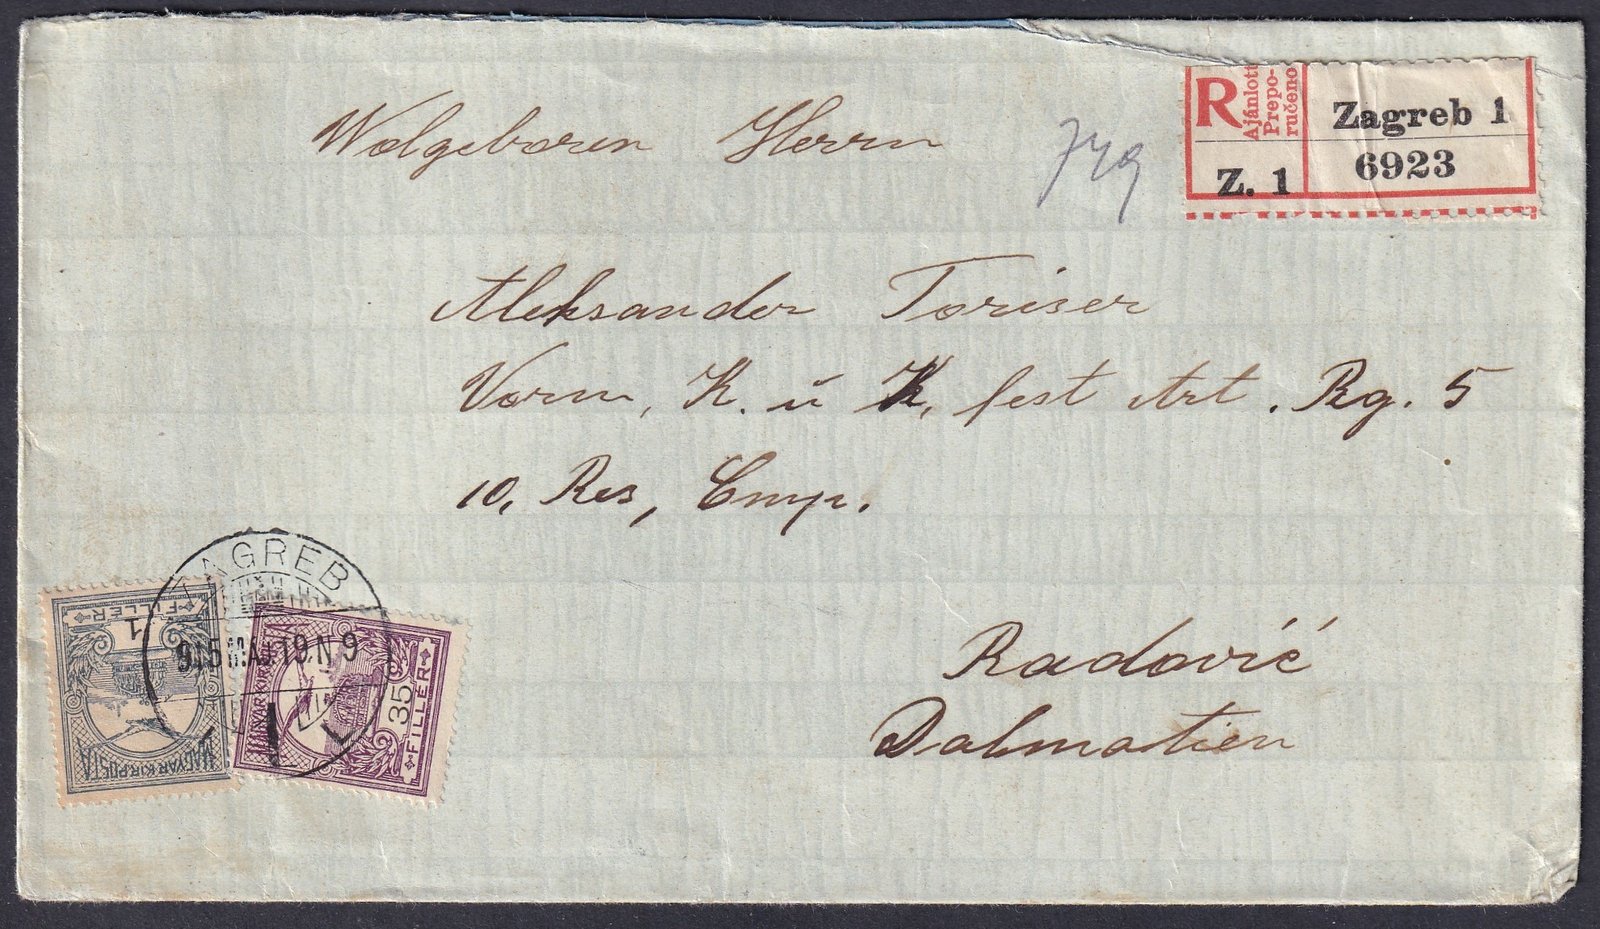 Wolgeboren Herrn
R
Ajánlott
Prepo-
ručeno
Zagreb 1
Z. 1
6923
Aleksander Toriser
Vorm, K. u K, fest Art. Rg. 5
10, Res, Cmp.
Radović
Dalmatien
ZAGREB
915 MAJ. 19. N 9
1
FILLÉR
MAGYAR KIR. POSTA
MAGYAR KIR. POSTA
35
FILLÉR